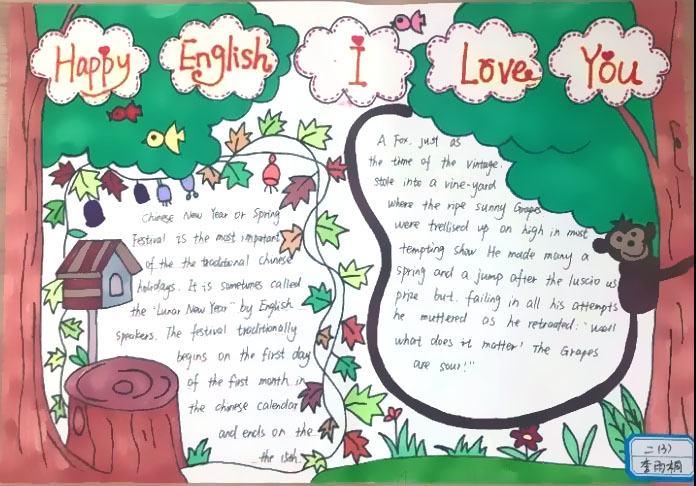 Happy English I Love You
Chinese New Year or Spring
Festival is the most important
of the the traditional Chinese
holidays. It is sometimes called
the "Lunar New Year" by English
speakers. The festival traditionally
begins on the first day
of the first month in
the chinese calendar
and ends on the
the 15th
A Fox, just as
the time of the vintage.
stole into a vine-yard
where the ripe sunny Grapes
were trellised up on high in most
tempting show. He made many a
spring and a jump after the luscio us
prize but. failing in all his attempts
he muttered as he retreated: "Well
what does it matter! The Grapes
are sour!"
二(3)
李雨桐